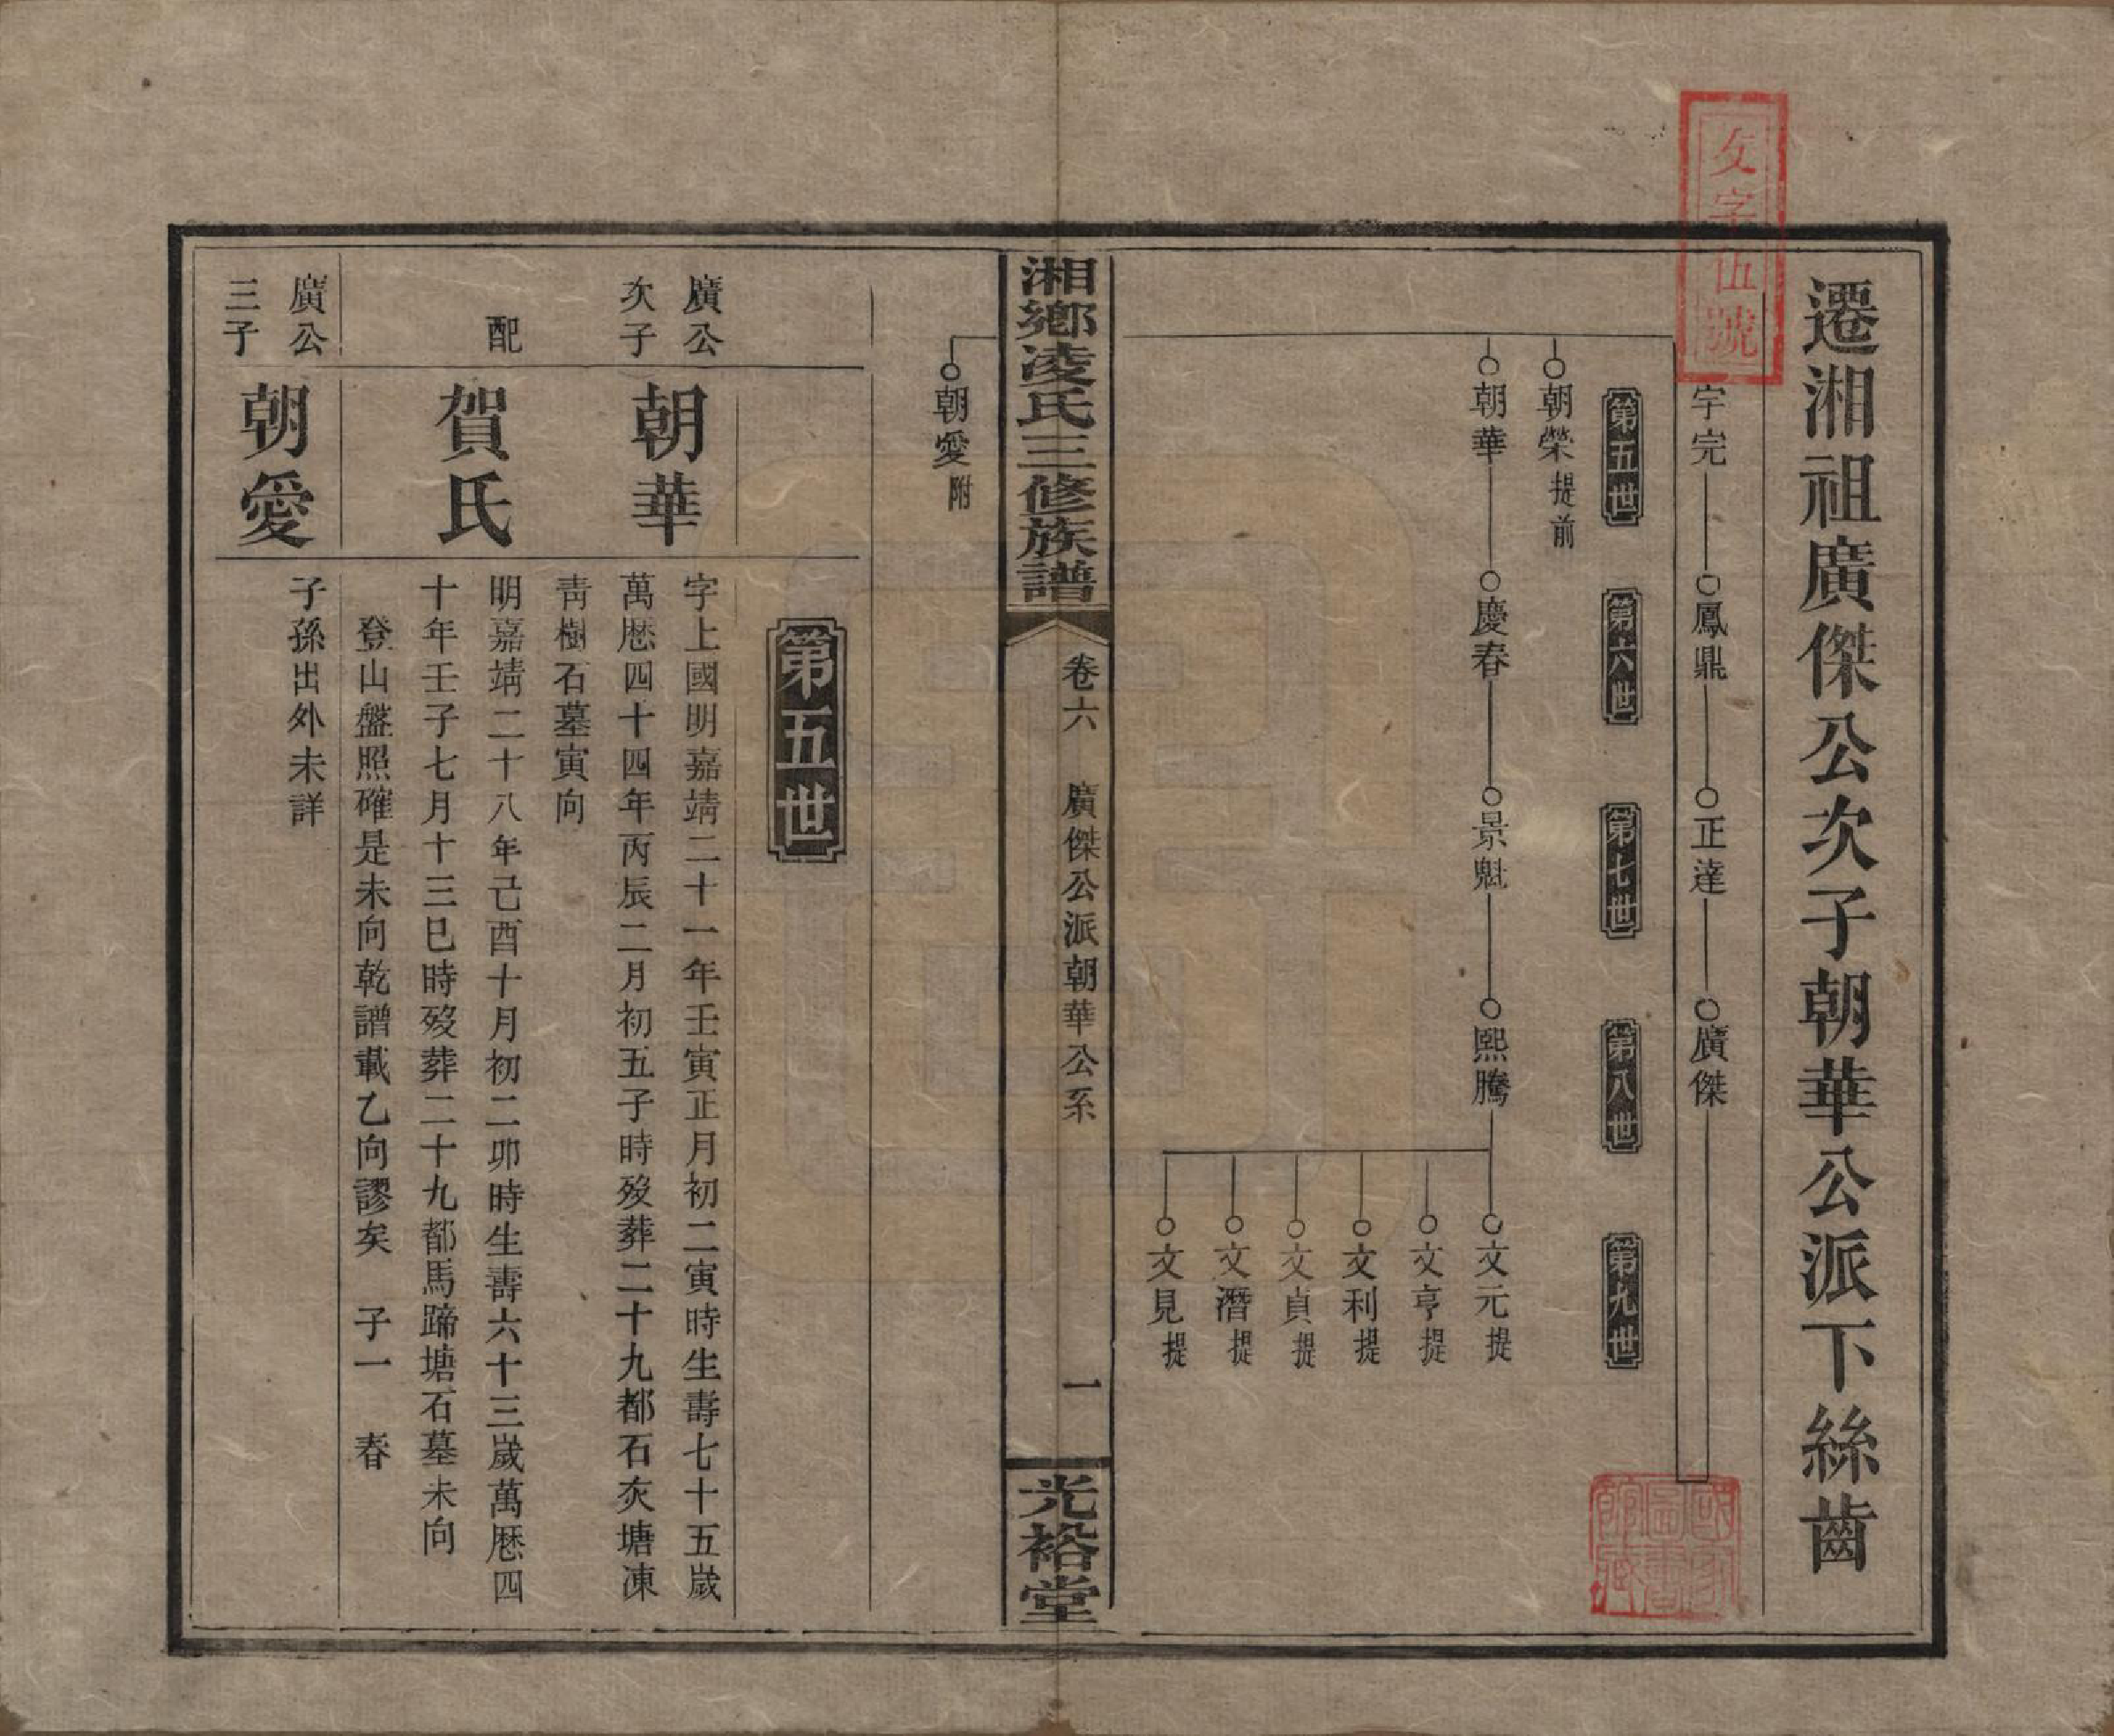 文字伍號
遷湘祖廣傑公次子朝華公派下絲齒
宇完 鳳鼎 正達 廣傑
國家圖書館藏
第五世 第六世 第七世 第八世 第九世
朝榮 提前
朝華 慶春 景魁 熙騰 文元 提
文亨 提
文利 提
文貞 提
文潛 提
文見 提
湘鄉凌氏三修族譜 卷六 廣傑公派朝華公系 一 光裕堂
朝愛 附
第五世
廣公次子 朝華
字上國明嘉靖二十一年壬寅正月初二寅時生壽七十五歲
萬厯四十四年丙辰二月初五子時歿葬二十九都石灰塘凍
靑樹石墓寅向
配 賀氏
明嘉靖二十八年己酉十月初二卯時生壽六十三歲萬厯四
十年壬子七月十三巳時歿葬二十九都馬蹄塘石墓未向
登山盤照確是未向乾譜載乙向謬矣 子一 春
廣公三子 朝愛
子孫出外未詳